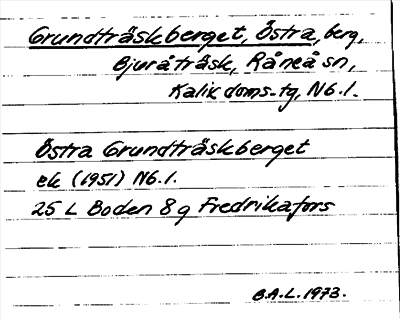 Grundträskberget, Östra, berg,
Bjuråträsk, Råneå sn,
Kalix doms.tg, Nb.l.
Östra Grundträskberget
ek (1951) Nb.l.
25 L Boden 8g Fredrikafors
B.A.L. 1973.